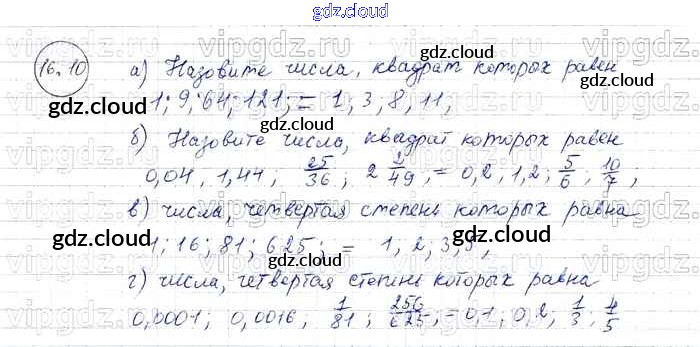 gdz.cloud
16.10 а) Назовите числа, квадрат которых равен
1; 9; 64; 121; = 1; 3; 8; 11;
б) Назовите числа, квадрат которых равен
0,04, 1,44; 25/36; 2 2/49; = 0,2, 1,2; 5/6; 10/7;
в) числа, четвертая степень которых равна
1; 16; 81; 625; = 1; 2; 3, 5;
г) числа, четвертая степень которых равна
0,0001; 0,0016, 1/81; 256/625; = 0,1; 0,2; 1/3; 4/5
vipgdz.ru
gdz.cloud